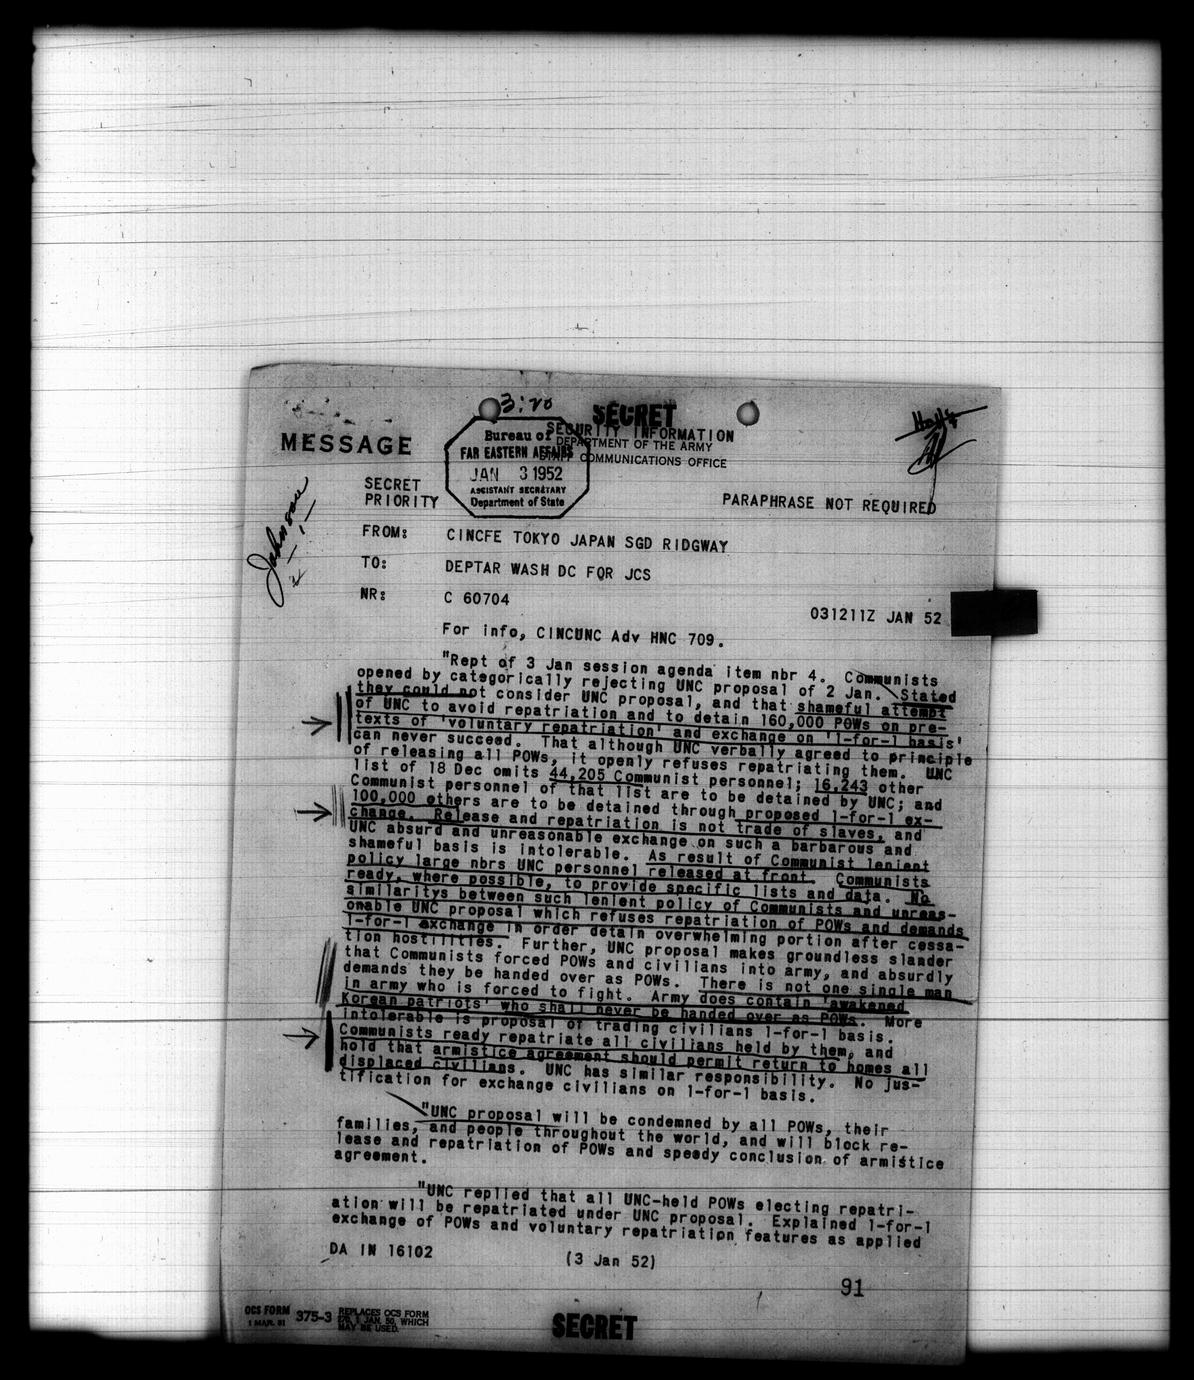 3:20
SECRET
SECURITY INFORMATION
DEPARTMENT OF THE ARMY
STAFF COMMUNICATIONS OFFICE
MESSAGE
Bureau of
FAR EASTERN AFFAIRS
JAN 3 1952
ASSISTANT SECRETARY
Department of State
Johnson
SECRET
PRIORITY
PARAPHRASE NOT REQUIRED
FROM: CINCFE TOKYO JAPAN SGD RIDGWAY
TO: DEPTAR WASH DC FOR JCS
NR: C 60704
031211Z JAN 52
For info, CINCUNC Adv HNC 709.
"Rept of 3 Jan session agenda item nbr 4. Communists
opened by categorically rejecting UNC proposal of 2 Jan. Stated
they could not consider UNC proposal, and that shameful attempt
of UNC to avoid repatriation and to detain 160,000 POWs on pre-
texts of 'voluntary repatriation' and exchange on '1-for-1 basis'
can never succeed. That although UNC verbally agreed to principle
of releasing all POWs, it openly refuses repatriating them. UNC
list of 18 Dec omits 44,205 Communist personnel; 16,243 other
Communist personnel of that list are to be detained by UNC; and
100,000 others are to be detained through proposed 1-for-1 ex-
change. Release and repatriation is not trade of slaves, and
UNC absurd and unreasonable exchange on such a barbarous and
shameful basis is intolerable. As result of Communist lenient
policy large nbrs UNC personnel released at front. Communists
ready, where possible, to provide specific lists and data. No
similaritys between such lenient policy of Communists and unreas-
onable UNC proposal which refuses repatriation of POWs and demands
1-for-1 exchange in order detain overwhelming portion after cessa-
tion hostilities. Further, UNC proposal makes groundless slander
that Communists forced POWs and civilians into army, and absurdly
demands they be handed over as POWs. There is not one single man
in army who is forced to fight. Army does contain 'awakened
Korean patriots' who shall never be handed over as POWs. More
intolerable is proposal of trading civilians 1-for-1 basis.
Communists ready repatriate all civilians held by them, and
hold that armistice agreement should permit return to homes all
displaced civilians. UNC has similar responsibility. No jus-
tification for exchange civilians on 1-for-1 basis.
"UNC proposal will be condemned by all POWs, their
families, and people throughout the world, and will block re-
lease and repatriation of POWs and speedy conclusion of armistice
agreement.
"UNC replied that all UNC-held POWs electing repatri-
ation will be repatriated under UNC proposal. Explained 1-for-1
exchange of POWs and voluntary repatriation features as applied
DA IN 16102 (3 Jan 52)
91
OCS FORM 375-3 REPLACES OCS FORM
1 MAR. 51 1 JAN. 50, WHICH
MAY BE USED.
SECRET